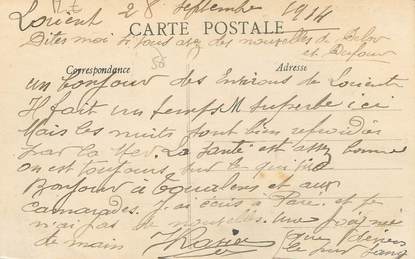 Lorient 28 septembre 1914
CARTE POSTALE
Dites moi si vous avez des nouvelles de
et Dufour
Correspondance
Adresse
un bonjour des Environs de Lorient
Il fait un temps superbe ici
Mais les nuits sont bien refroidies
par la Mer. La Santé est assez bonne
on est toujours sur le qui
Bonjour à et aux
camarades. J'ai écris à et je
n'ai pas de nouvelles. Une poignée
de main